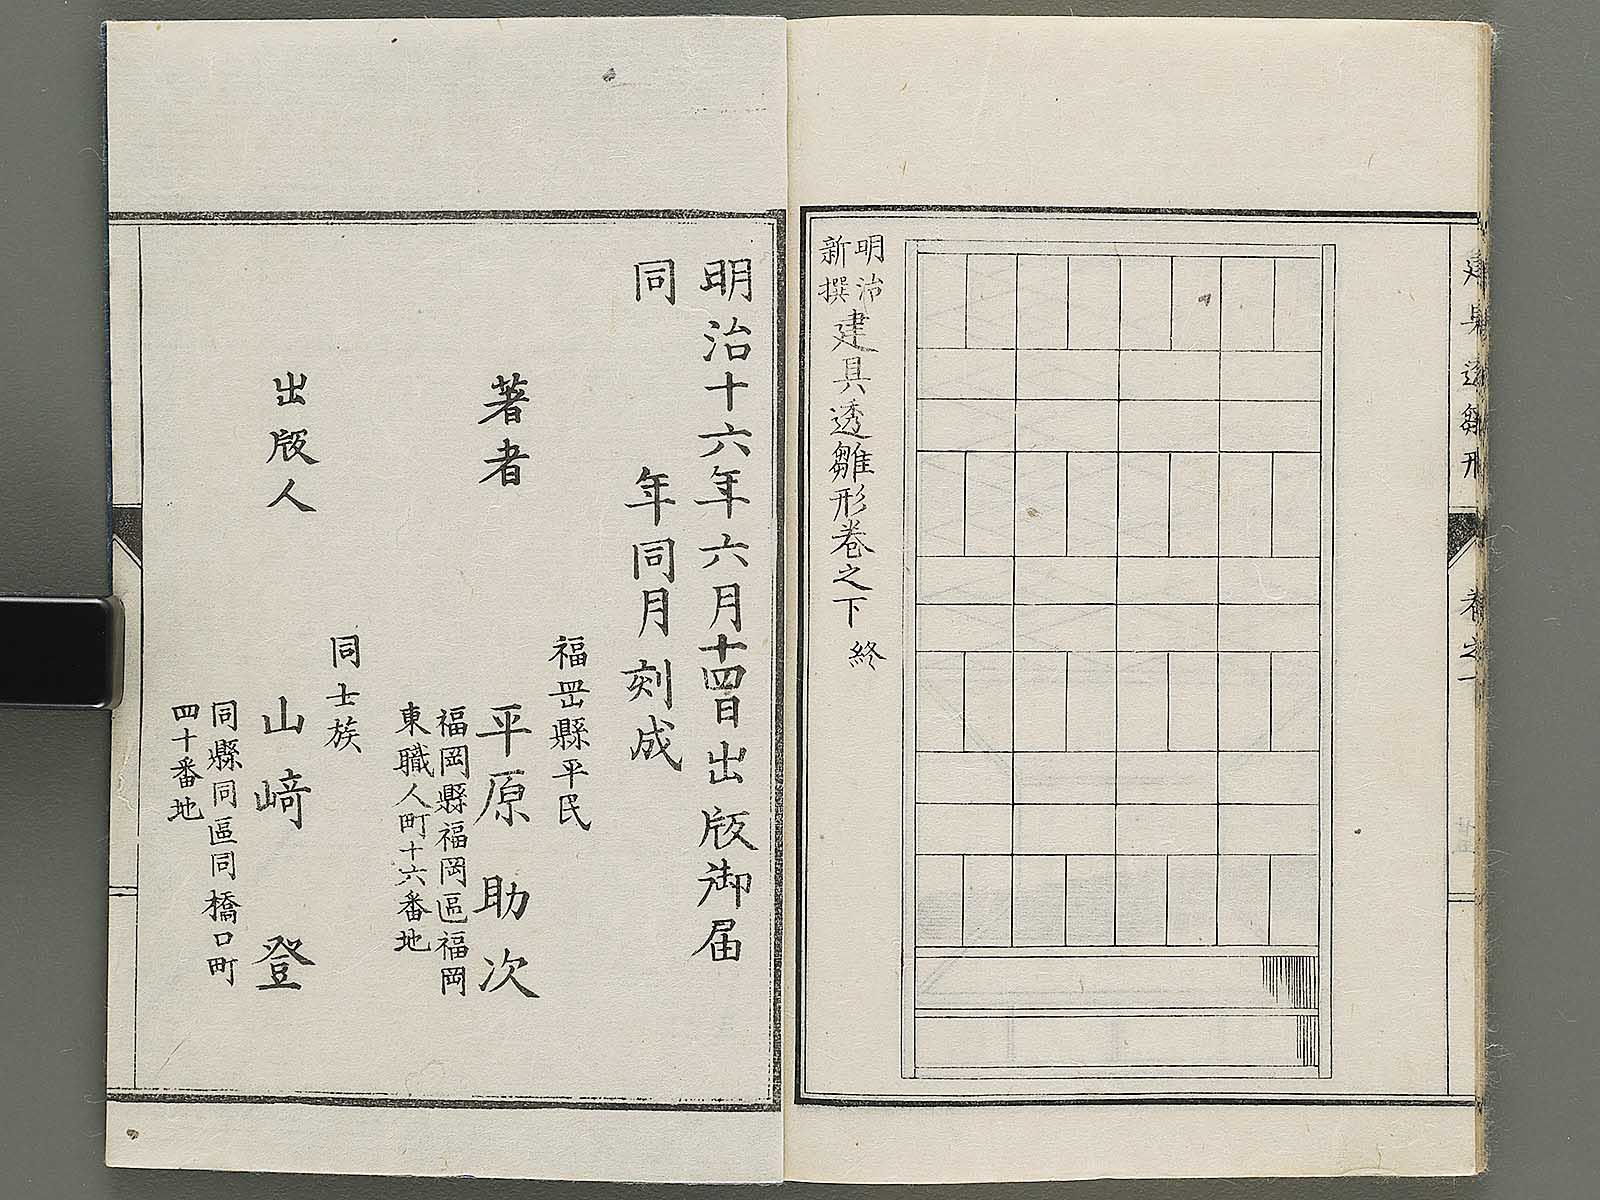 建具透雛形
卷之下
明治
新撰
建具透雛形卷之下 終
明治十六年六月十四日出版御届
同 年同月刻成
福岡縣平民
著者 平原助次
福岡縣福岡區福岡
東職人町十六番地
同士族
出版人 山﨑登
同縣同區同橋口町
四十番地